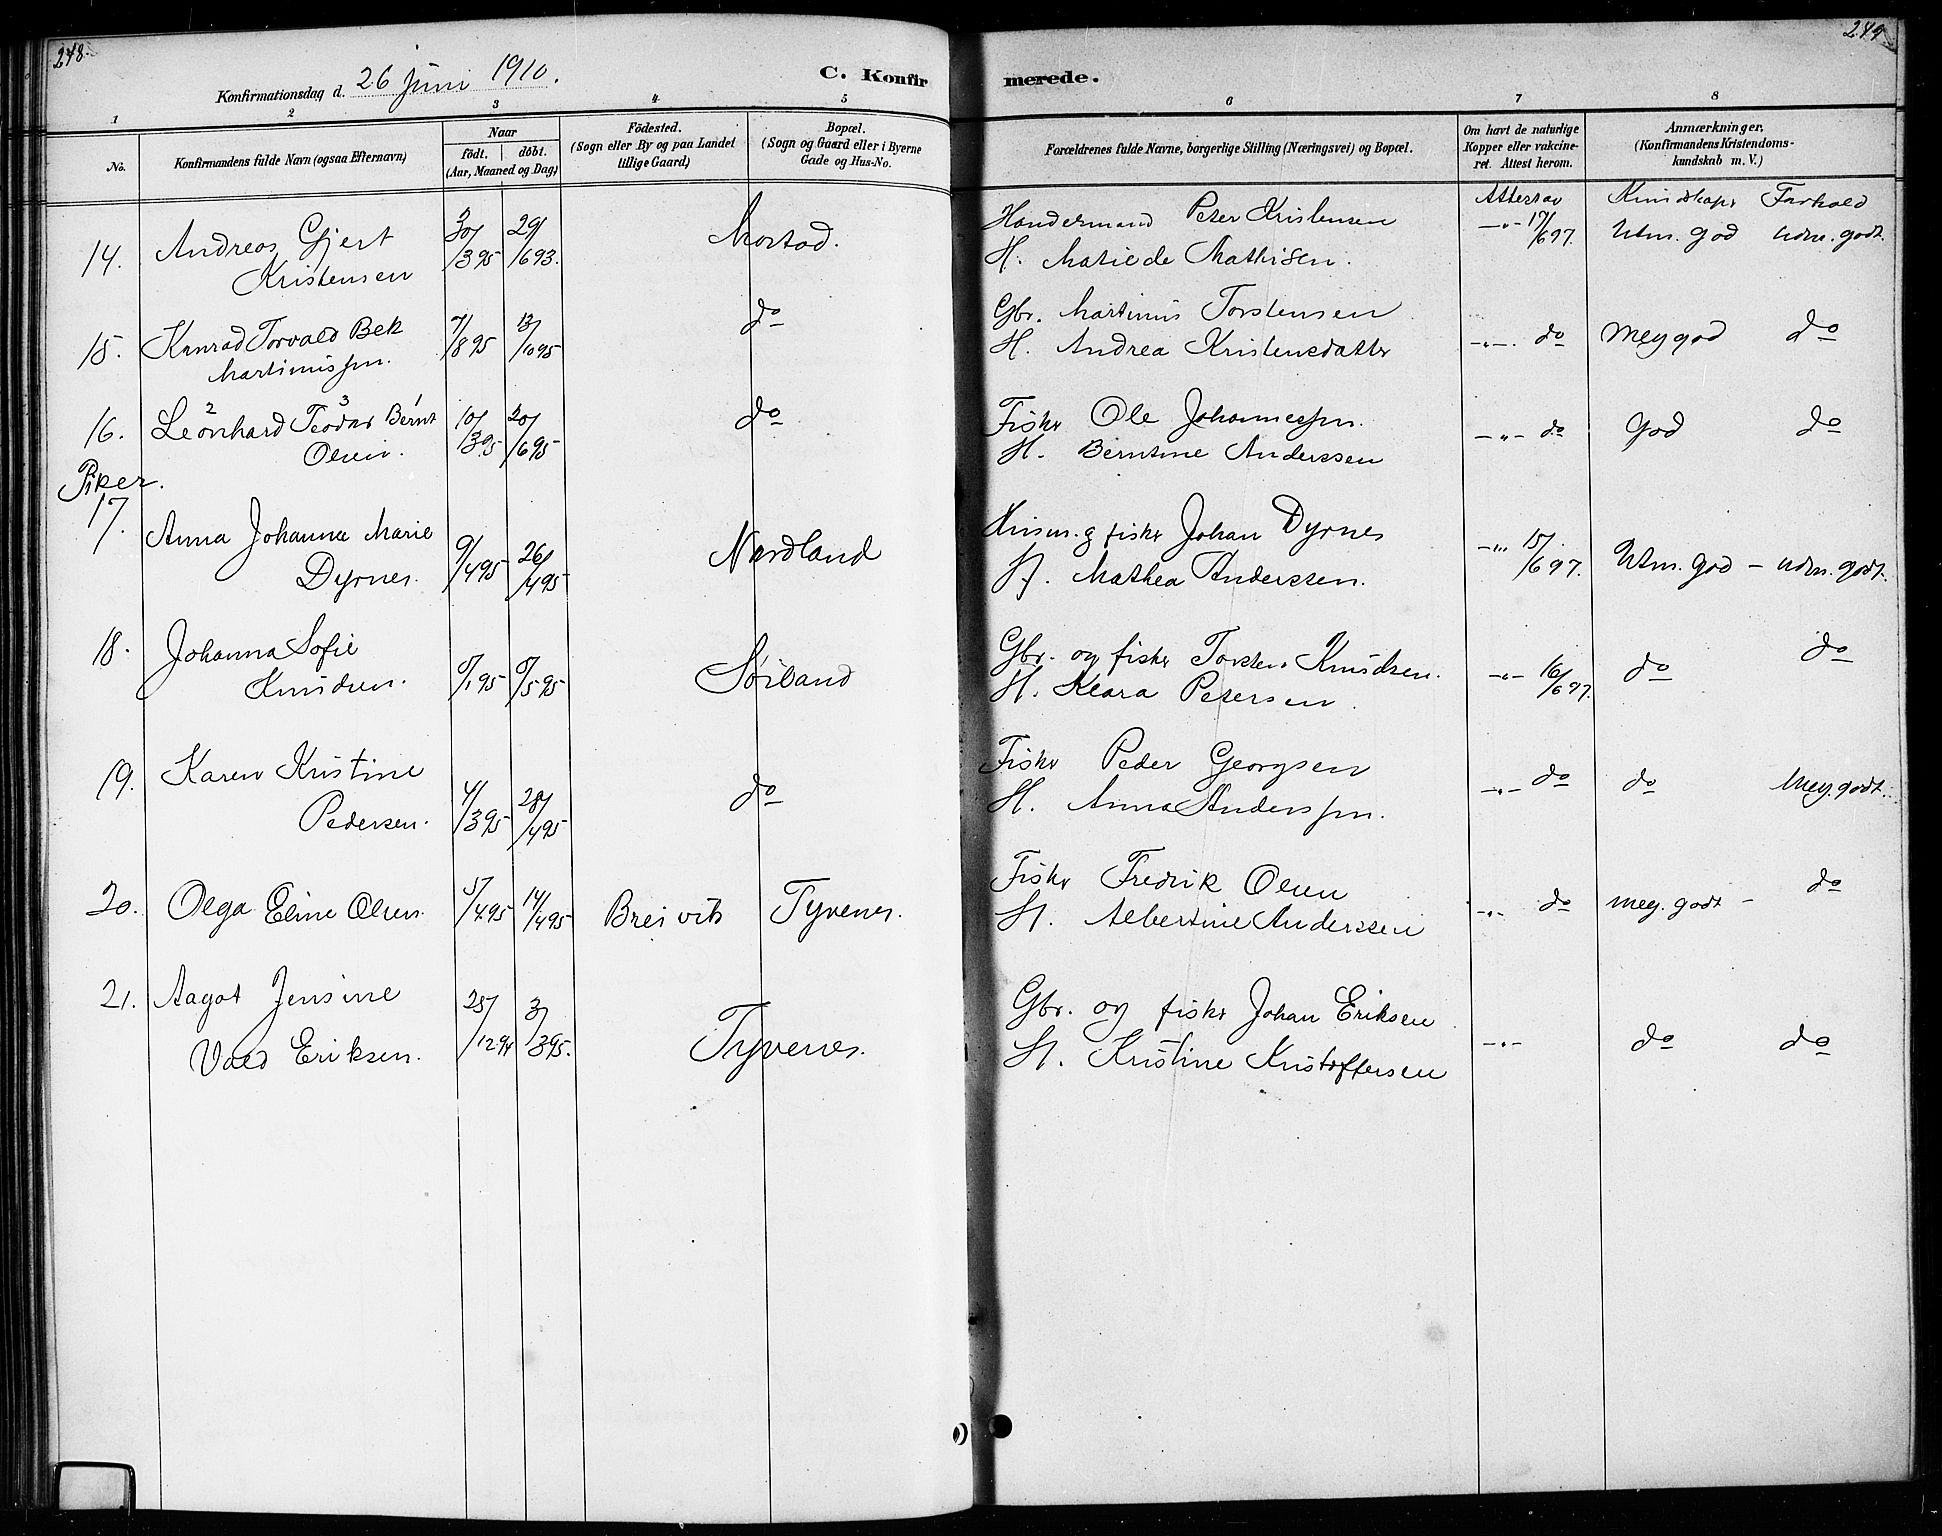 248.
249
Konfirmationsdag d. 26 Juni 1910.
C. Konfirmerede.
1 2 3 4 5 6 7 8
No.
Konfirmandens fulde Navn (ogsaa Efternavn)
Naar
födt. döbt.
(Aar, Maaned og Dag)
Födested.
(Sogn eller By og paa Landet
tillige Gaard)
Bopæl.
(Sogn og Gaard eller i Byerne
Gade og Hus-No.
Forældrenes fulde Navne, borgerlige Stilling (Næringsvei) og Bopæl.
Om havt de naturlige
Kopper eller vakcine-
ret. Attest herom.
Anmærkninger,
(Konfirmandens Kristendoms-
kundskab m. V.)
Attest av Kundskaper Forhold
14. Andreas Gjert 30/3 95 29/6 93. Mostad. Handelsmand Peter Kristensen -"- 17/6 97. Utm. god udm. godt.
Kristensen H. Matilde Mathisen.
15. Konrad Torvald Bek 7/8 95 13/10 95 do Gbr. Martinus Torstensen
Martinussen. H. Andrea Kristensdatter -"- do Meg god do
16. Leonhard 2 Teodor 3 Bernt 1 10/3 95 20/6 95 do Fisker Ole Johannessen.
Olsen. H. Berntine Anderssen -"- do God do
Piker.
17. Anna Johanna Marie 9/4 95 26/4 95 Nordland Husm. g fisker Johan Dyrnes -"- 15/6 97. Utm. god - udm. godt.
Dyrnes. H. Mathea Anderssen.
18. Johanna Sofie Gbr. og fisker Torsten Knudsen. do
Knudsen. 9/1 95 9/5 95 Sørland H. Klara Petersen. -"- 16/6 97. do
19. Karen Kristine 4/3 95 28/4 95 do Fisker Peder Georgsen -"- do do Meg. godt.
Pedersen. H. Anna Anderssen.
20. Olga Eline Olsen. 5/4 95 14/4 95 Breivik Tyvenes. Fisker Fredrik Olsen -"- do meg. godt - do
H. Albertine Anderssen
21. Aagot Jensine 28/12 94 3/3 95. Tyvenes. Gbr. og fisker Johan Eriksen
Vald Eriksen. H. Kristine Kristoffersen -"- do do